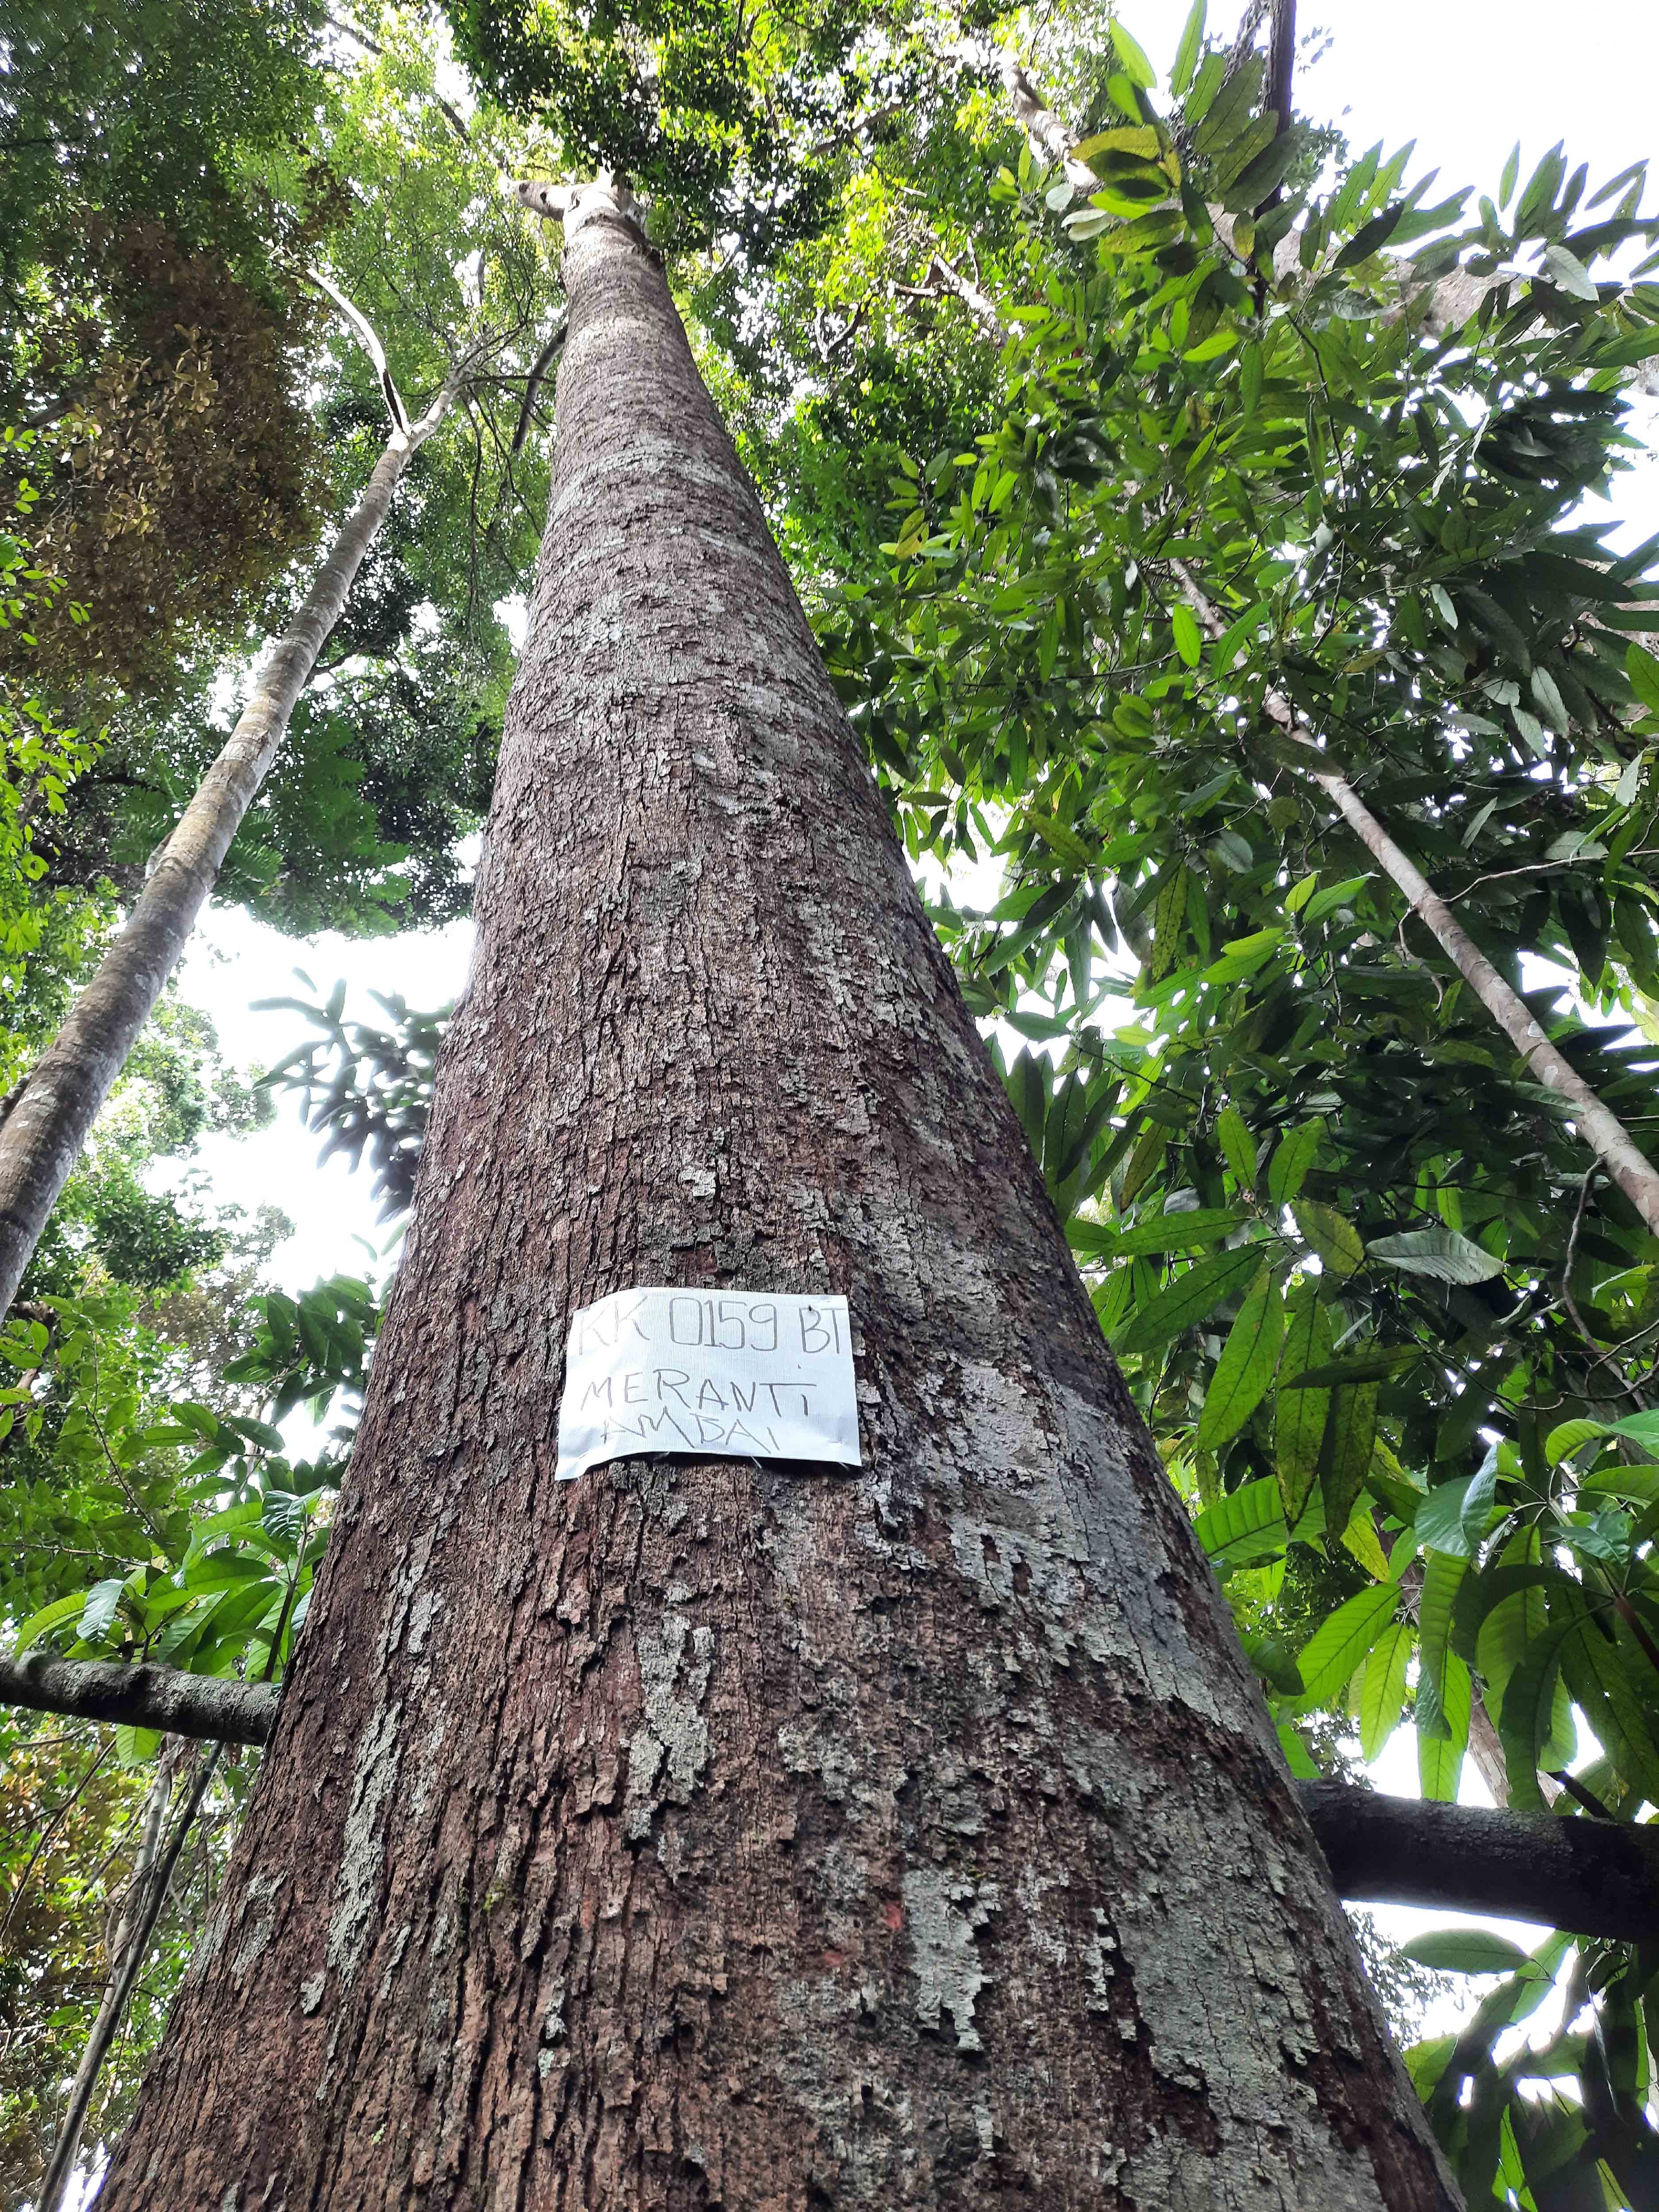 KK 0159 BT
MERANTi
AMBAI